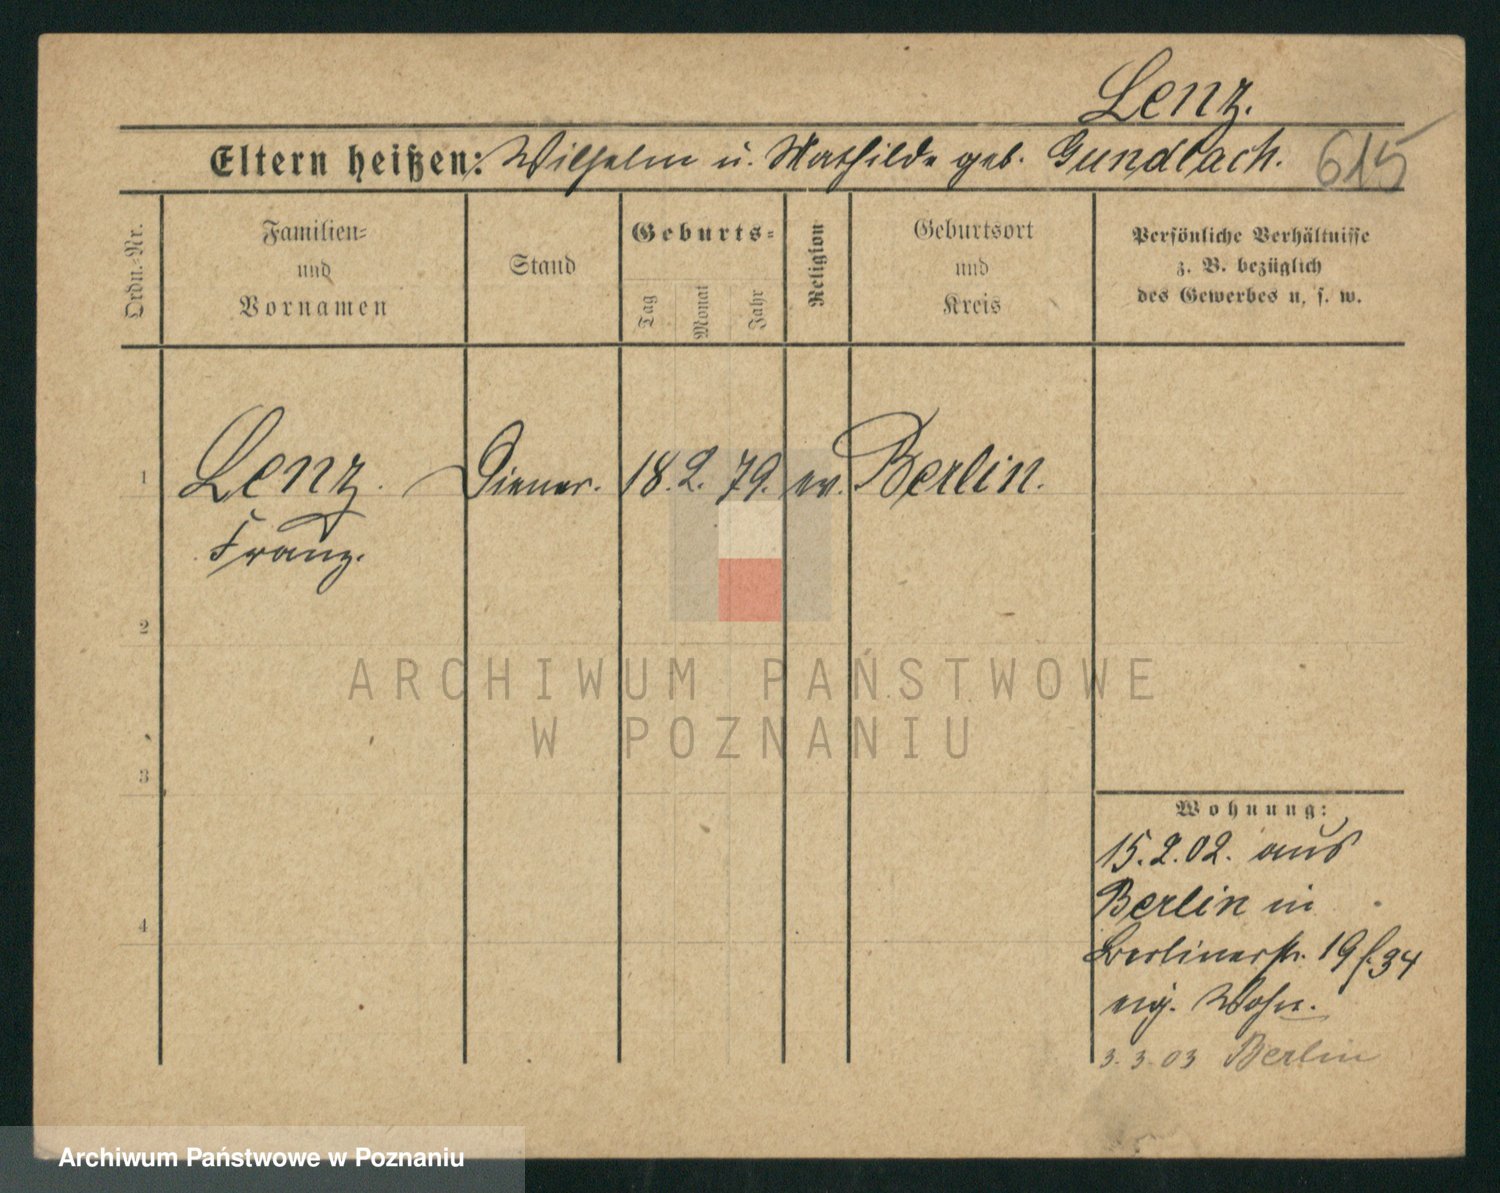 Lenz.
Eltern heißen: Wilhelm u. Mathilde geb. Gundlach. 615
Ordn.-Nr.
Familien-
und
Vornamen
Stand
Geburts-
Tag
Monat
Jahr
Religion
Geburtsort
und
Kreis
Persönliche Verhältnisse
z. B. bezüglich
des Gewerbes u. s. w.
1 Lenz. Diener. 18. 2. 79. ev. Berlin.
Franz.
2
ARCHIWUM PAŃSTWOWE
W POZNANIU
3
Wohnung:
15.2.02. aus
Berlin in
4
Berlinerstr. 19 f. 34
eig. Wohn.
3.3.03 Berlin
Archiwum Państwowe w Poznaniu